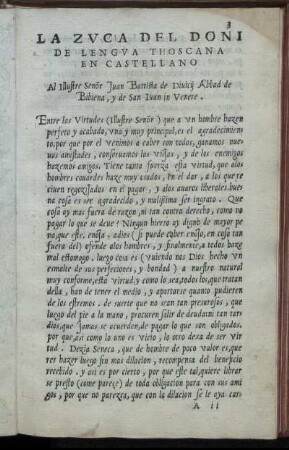 3
LA ZVCA DEL DONI
DE LENGVA THOSCANA
EN CASTELLANO
Al Illustre Señor Juan Battista de Diuicij Abbad de
Bibiena, y de San Iuan in Venere.
Entre las Virtudes (Illustre Señor) que a vn hombre hazen
perfeto y acabado, vna y muy principal, es el agradecimien
to, por que por el venimos a caber con todos, ganamos nue
uas amistades, conseruamos las viejas, y de los enemigos
hazemos amigos. Tiene tanta fuerza esta virtud, que a los
hombres couardes haze muy osados en el dar, a los que re
ciuen regozijados en el pagar, y alos auaros liberales. bue
na cosa es ser agradecido, y malissima ser ingrato. Que
cosa ay mas fuera de razon, ni tan contra derecho, como no
pagar lo que se deue? Ningun hierro ay digno de mayor pe
na, que este. ensusa, a dios (si puede caber ensio, en cosa tan
fuera del) ofende alos hombres, y finalmente, a todos haze
mal estomago. luego cosa es (viendo nos Dios hecho vn
esmalte de sus perfectiones, y bondad) a nuestro natural
muy conforme, esta virtud. y como lo sea, todos los, que tratan
della, han de tener el medio, y apartarse quanto pudieren
de los estremos. de suerte que no sean tan presurosos, que
luego del pie a la mano, procuren salir de deuda. ni tan tar
dios, que jamas se acuerden, de pagar lo que son obligados.
por que, asi como lo vno es vicio, lo otro dexa de ser vir
tud. Dezia Seneca, que de hombre de poco valor es, que
rer hazer luego sin mas dilacion, recompensa del beneficio
recebido. y asi es por cierto, por que este tal, quiere librar
se presto (como pareçe) de toda obligacion para con sus ami
gos, por que no parezca, que con la dilacion se le aya car-
A ii